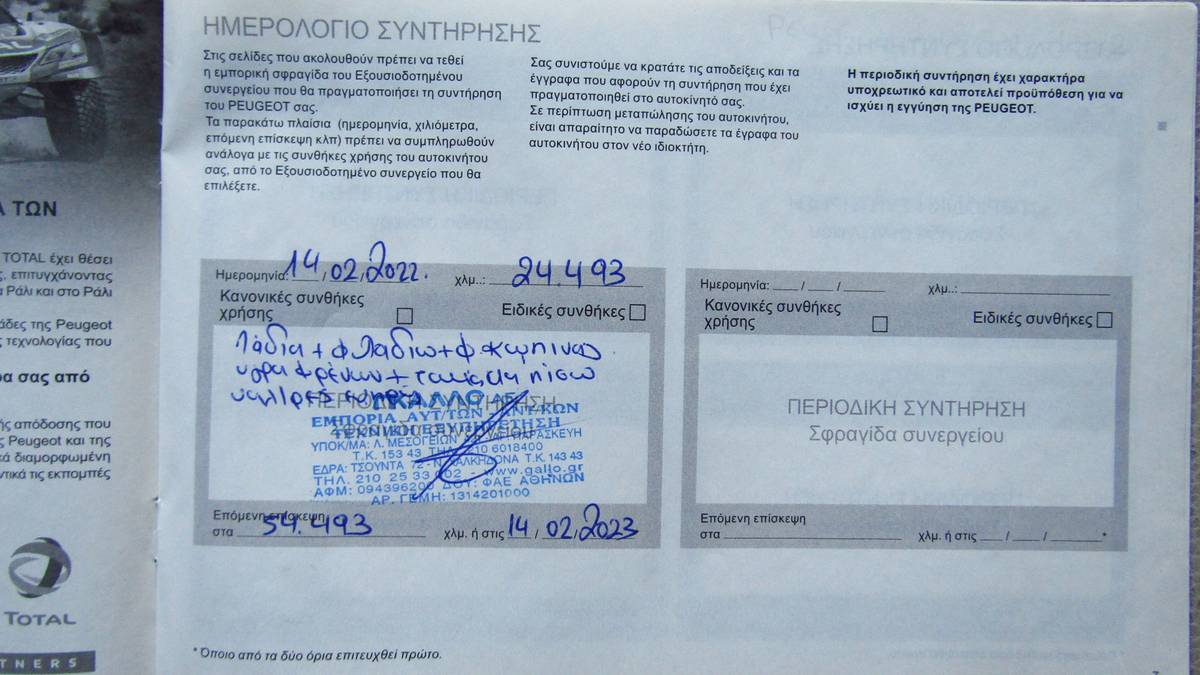 ΗΜΕΡΟΛΟΓΙΟ ΣΥΝΤΗΡΗΣΗΣ
Στις σελίδες που ακολουθούν πρέπει να τεθεί
η εμπορική σφραγίδα του Εξουσιοδοτημένου
συνεργείου που θα πραγματοποιήσει τη συντήρηση
του PEUGEOT σας.
Τα παρακάτω πλαίσια (ημερομηνία, χιλιόμετρα,
επόμενη επίσκεψη κλπ) πρέπει να συμπληρωθούν
ανάλογα με τις συνθήκες χρήσης του αυτοκινήτου
σας, από το Εξουσιοδοτημένο συνεργείο που θα
επιλέξετε.
Σας συνιστούμε να κρατάτε τις αποδείξεις και τα
έγγραφα που αφορούν τη συντήρηση που έχει
πραγματοποιηθεί στο αυτοκίνητό σας.
Σε περίπτωση μεταπώλησης του αυτοκινήτου,
είναι απαραίτητο να παραδώσετε τα έγραφα του
αυτοκινήτου στον νέο ιδιοκτήτη.
Η περιοδική συντήρηση έχει χαρακτήρα
υποχρεωτικό και αποτελεί προϋπόθεση για να
ισχύει η εγγύηση της PEUGEOT.
Ημερομηνία: 14/02/2022. χλμ..: 24.493
Κανονικές συνθήκες
χρήσης
Ειδικές συνθήκες
λάδια + φ λαδιου + φ καμπινας
υγρα φρένων + τακακια πισω
ΠΕΡΙΟΔΙΚΗ ΣΥΝΤΗΡΗΣΗ
ΓΚΑΛΛΟ ΑΕ
ΕΜΠΟΡΙΑ ΑΥΤ/ΤΩΝ - ΑΝΤ/ΚΩΝ
ΤΕΧΝΙΚΗ ΕΞΥΠΗΡΕΤΗΣΗ
ΥΠΟΚ/ΜΑ: Λ. ΜΕΣΟΓΕΙΩΝ ΑΓ. ΠΑΡΑΣΚΕΥΗ
Τ.Κ. 153 43 ΤΗΛ. 210 6018400
ΕΔΡΑ: ΤΣΟΥΝΤΑ 72 - Ν. ΧΑΛΚΗΔΟΝΑ Τ.Κ. 143 43
ΤΗΛ. 210 25 33 002 - www.gallo.gr
ΑΦΜ: 094396200 ΔΟΥ: ΦΑΕ ΑΘΗΝΩΝ
ΑΡ. ΓΕΜΗ: 1314201000
Επόμενη επίσκεψη
στα 54.493 χλμ. ή στις 14/02/2023
Ημερομηνία: / / χλμ..:
Κανονικές συνθήκες
χρήσης
Ειδικές συνθήκες
ΠΕΡΙΟΔΙΚΗ ΣΥΝΤΗΡΗΣΗ
Σφραγίδα συνεργείου
Επόμενη επίσκεψη
στα χλμ. ή στις / / *
* Όποιο από τα δύο όρια επιτευχθεί πρώτο.
Α ΤΩΝ
TOTAL έχει θέσει
ς, επιτυγχάνοντας
α Ράλι και στο Ράλι
άδες της Peugeot
ς τεχνολογίας που
ρα σας από
ής απόδοσης που
ς Peugeot και της
κά διαμορφωμένη
ντικά τις εκπομπές
TOTAL
TNERS